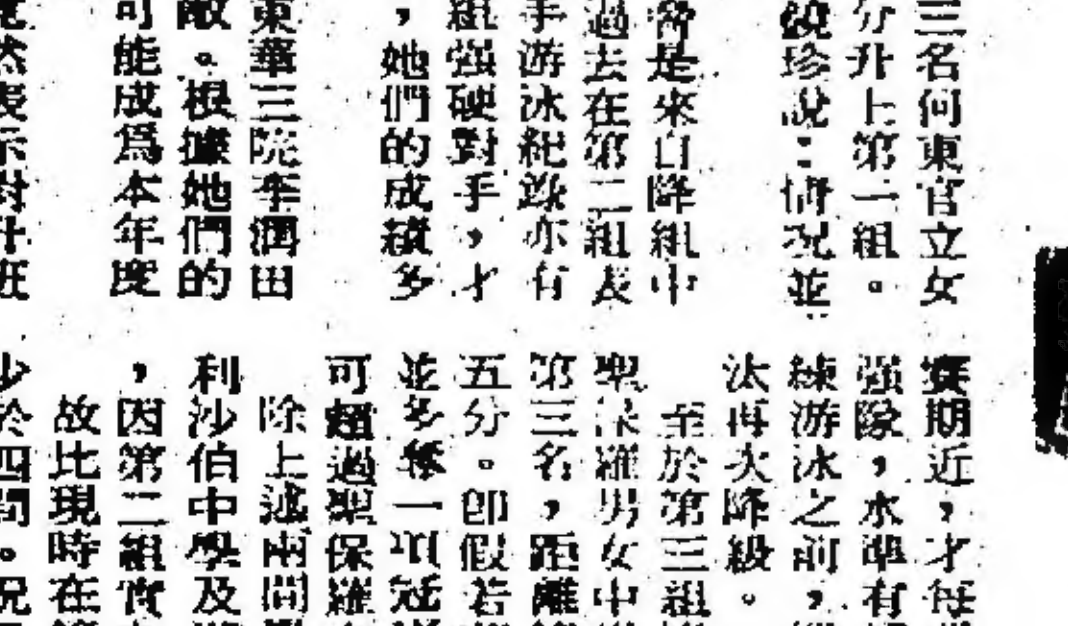 三名何東官立女
分升上第一組。
鏡珍說：情況並
是來自降組中
過去在第二組表
手游泳紀錄亦有
組强硬對手，才
，她們的成績多
東華三院李潤田
敵。根據她們的
可能成爲本年度
竟然表示對升班
賽期近，才每
强隊，水準有
練游泳之前，
汰再次降級。
至於第三組
聖保羅男女中
第三名，距離
五分。卽假若
並多奪一項冠
可超過聖保羅
除上述兩間
利沙伯中學及
，因第二組實
故比現時在
少於四間。況